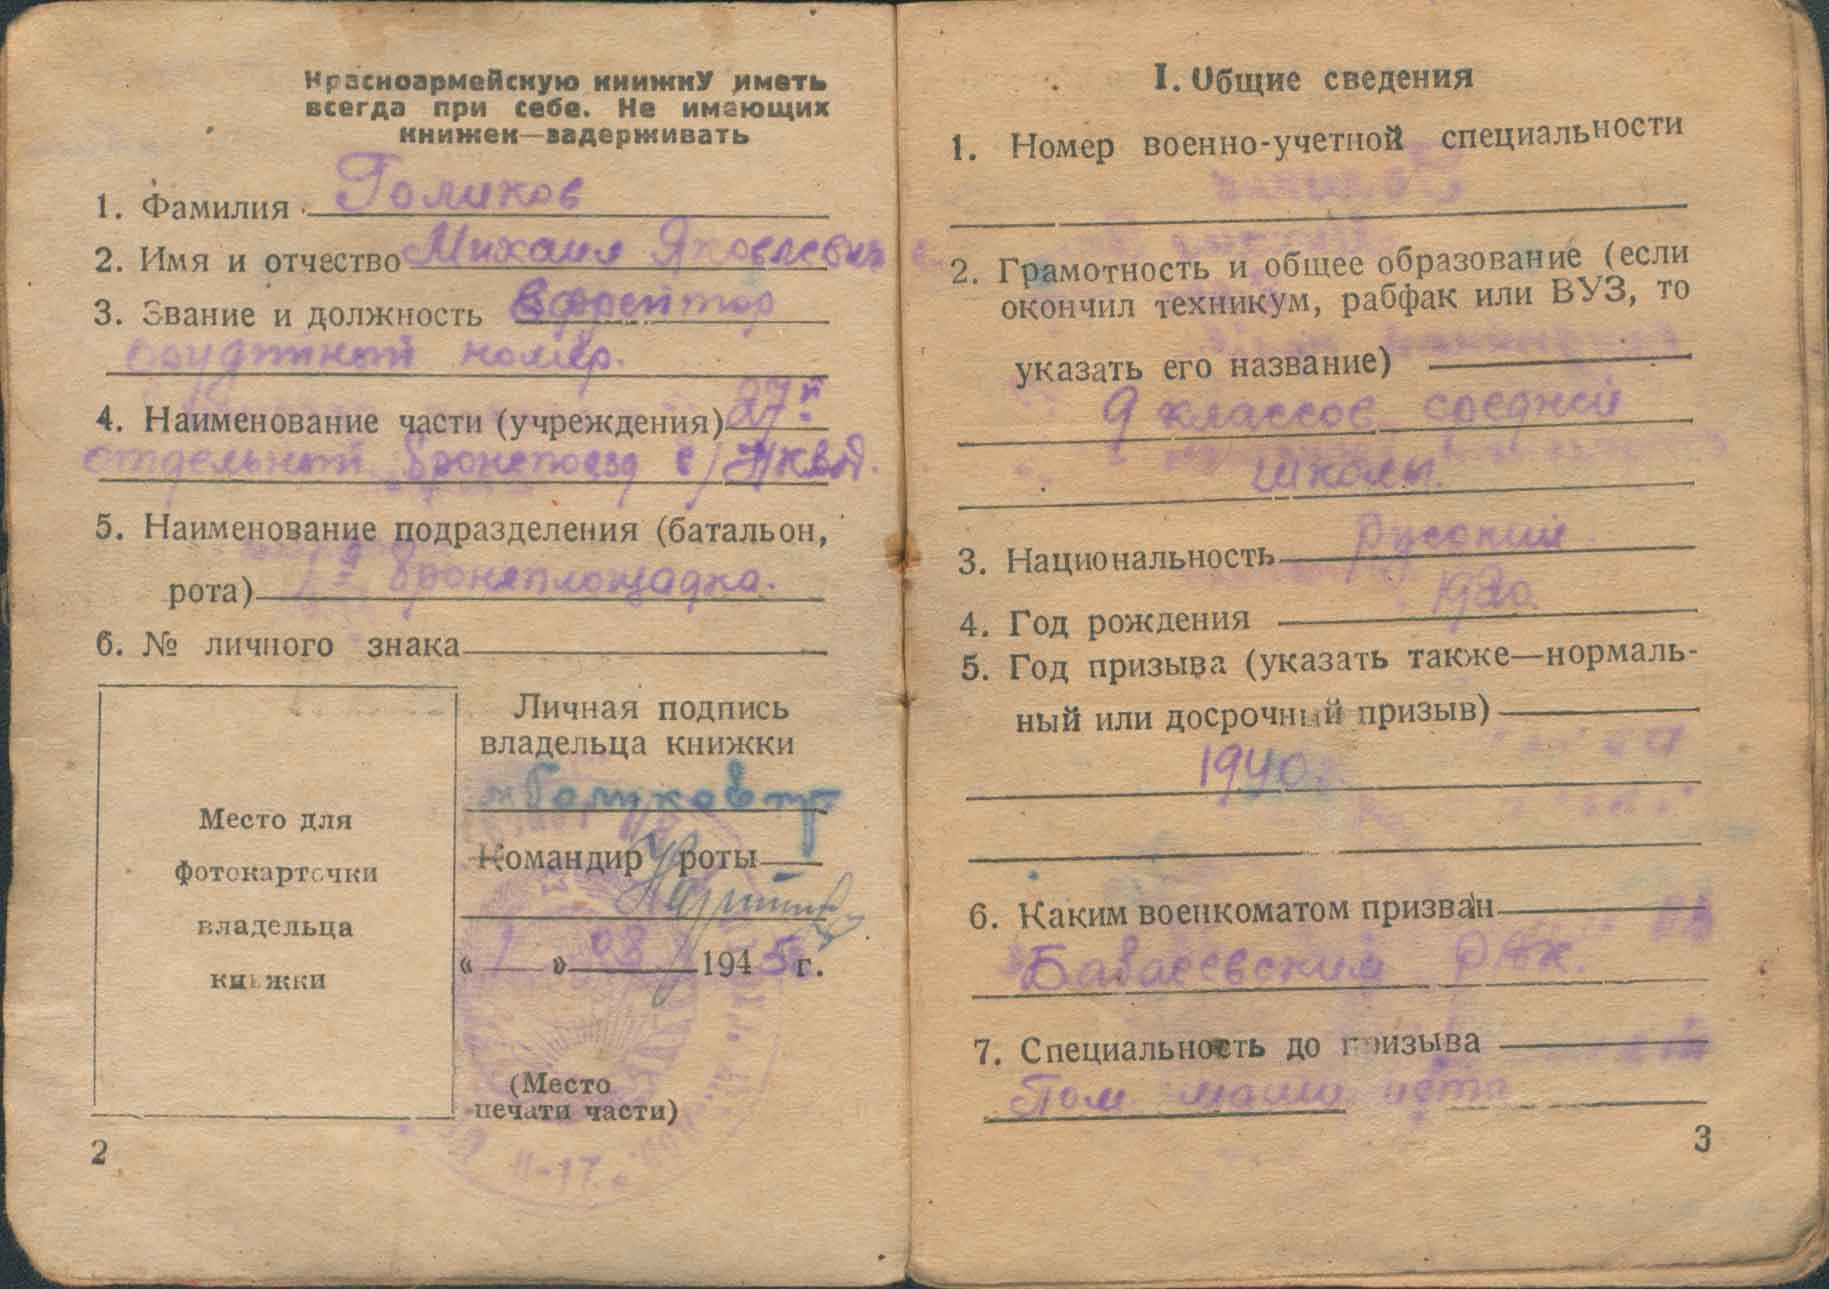 Красноармейскую книжку иметь
всегда при себе. Не имеющих
книжек—задерживать
1. Фамилия Голиков
2. Имя и отчество Михаил Яковлевич
3. Звание и должность Ефрейтор
орудийный номер.
4. Наименование части (учреждения) 27й
отдельный бронепоезд в/НКВД.
5. Наименование подразделения (батальон,
рота) 1я бронеплощадка.
6. № личного знака
Место для
фотокарточки
владельца
книжки
Личная подпись
владельца книжки
Голиков
Командир роты
«1» 03 1945 г.
(Место
печати части)
2
I. Общие сведения
1. Номер военно-учетной специальности
2. Грамотность и общее образование (если
окончил техникум, рабфак или ВУЗ, то
указать его название)
9 классов средней
школы.
3. Национальность Русский
4. Год рождения 1920.
5. Год призыва (указать также—нормаль-
ный или досрочный призыв)
1940
6. Каким военкоматом призван
Бабаевский РВК.
7. Специальность до призыва
Пом. машиниста
3